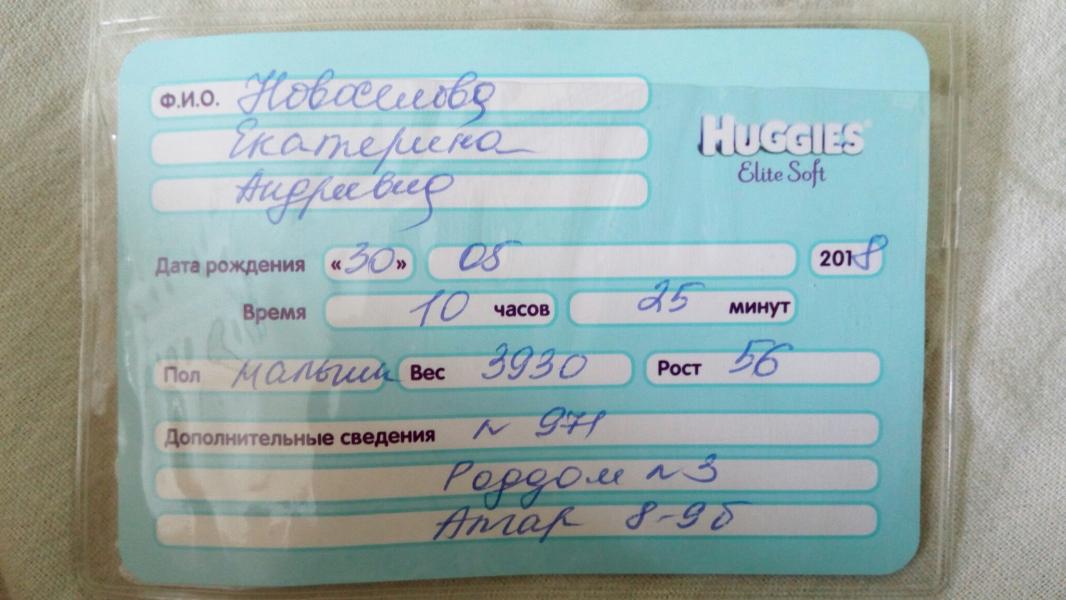 Ф.И.О. Новоселова
Екатерина
HUGGIES
Elite Soft
Дата рождения «30» 05 2018
Время 10 часов 25 минут
Пол Вес 3930 Рост 56
Дополнительные сведения N 971
Роддом N3
Апгар 8-9б